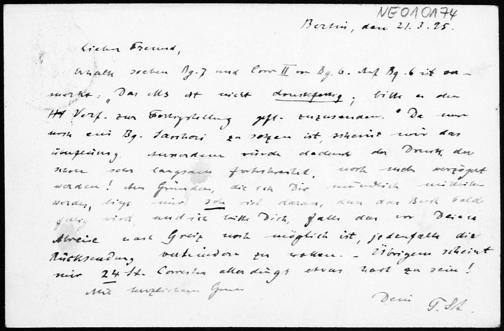 NE010174
Berlin, den 21.3.25.
Lieber Freund,
erhalte soeben Bg. 7 und Corr II von Bg. 6. Auf Bg. 6 ist
merkt: „Das MS ist nicht druckfertig; bitte es den
HH Verf. zur Fertigstellung gefl. zuzusenden." Da nur
noch ein Bg. zu setzen ist, scheint mir das
. Ausserdem würde dadurch der Druck, der
sehr langsam fortschreitet, noch mehr verzögert
werden! Aus Gründen, die ich Dir mündlich mitteilen
werde, liegt mir sehr viel daran, dass das Buch bald
fertig wird und ich bitte Dich, falls das vor Deiner
Abreise nach Greiz noch möglich ist, jedenfalls die
Rücksendung verhindern zu wollen. – Übrigens scheint
mir 24 St. Correctur allerdings etwas hart zu sein!
Mit herzlichem Gruss
Dein F. St.